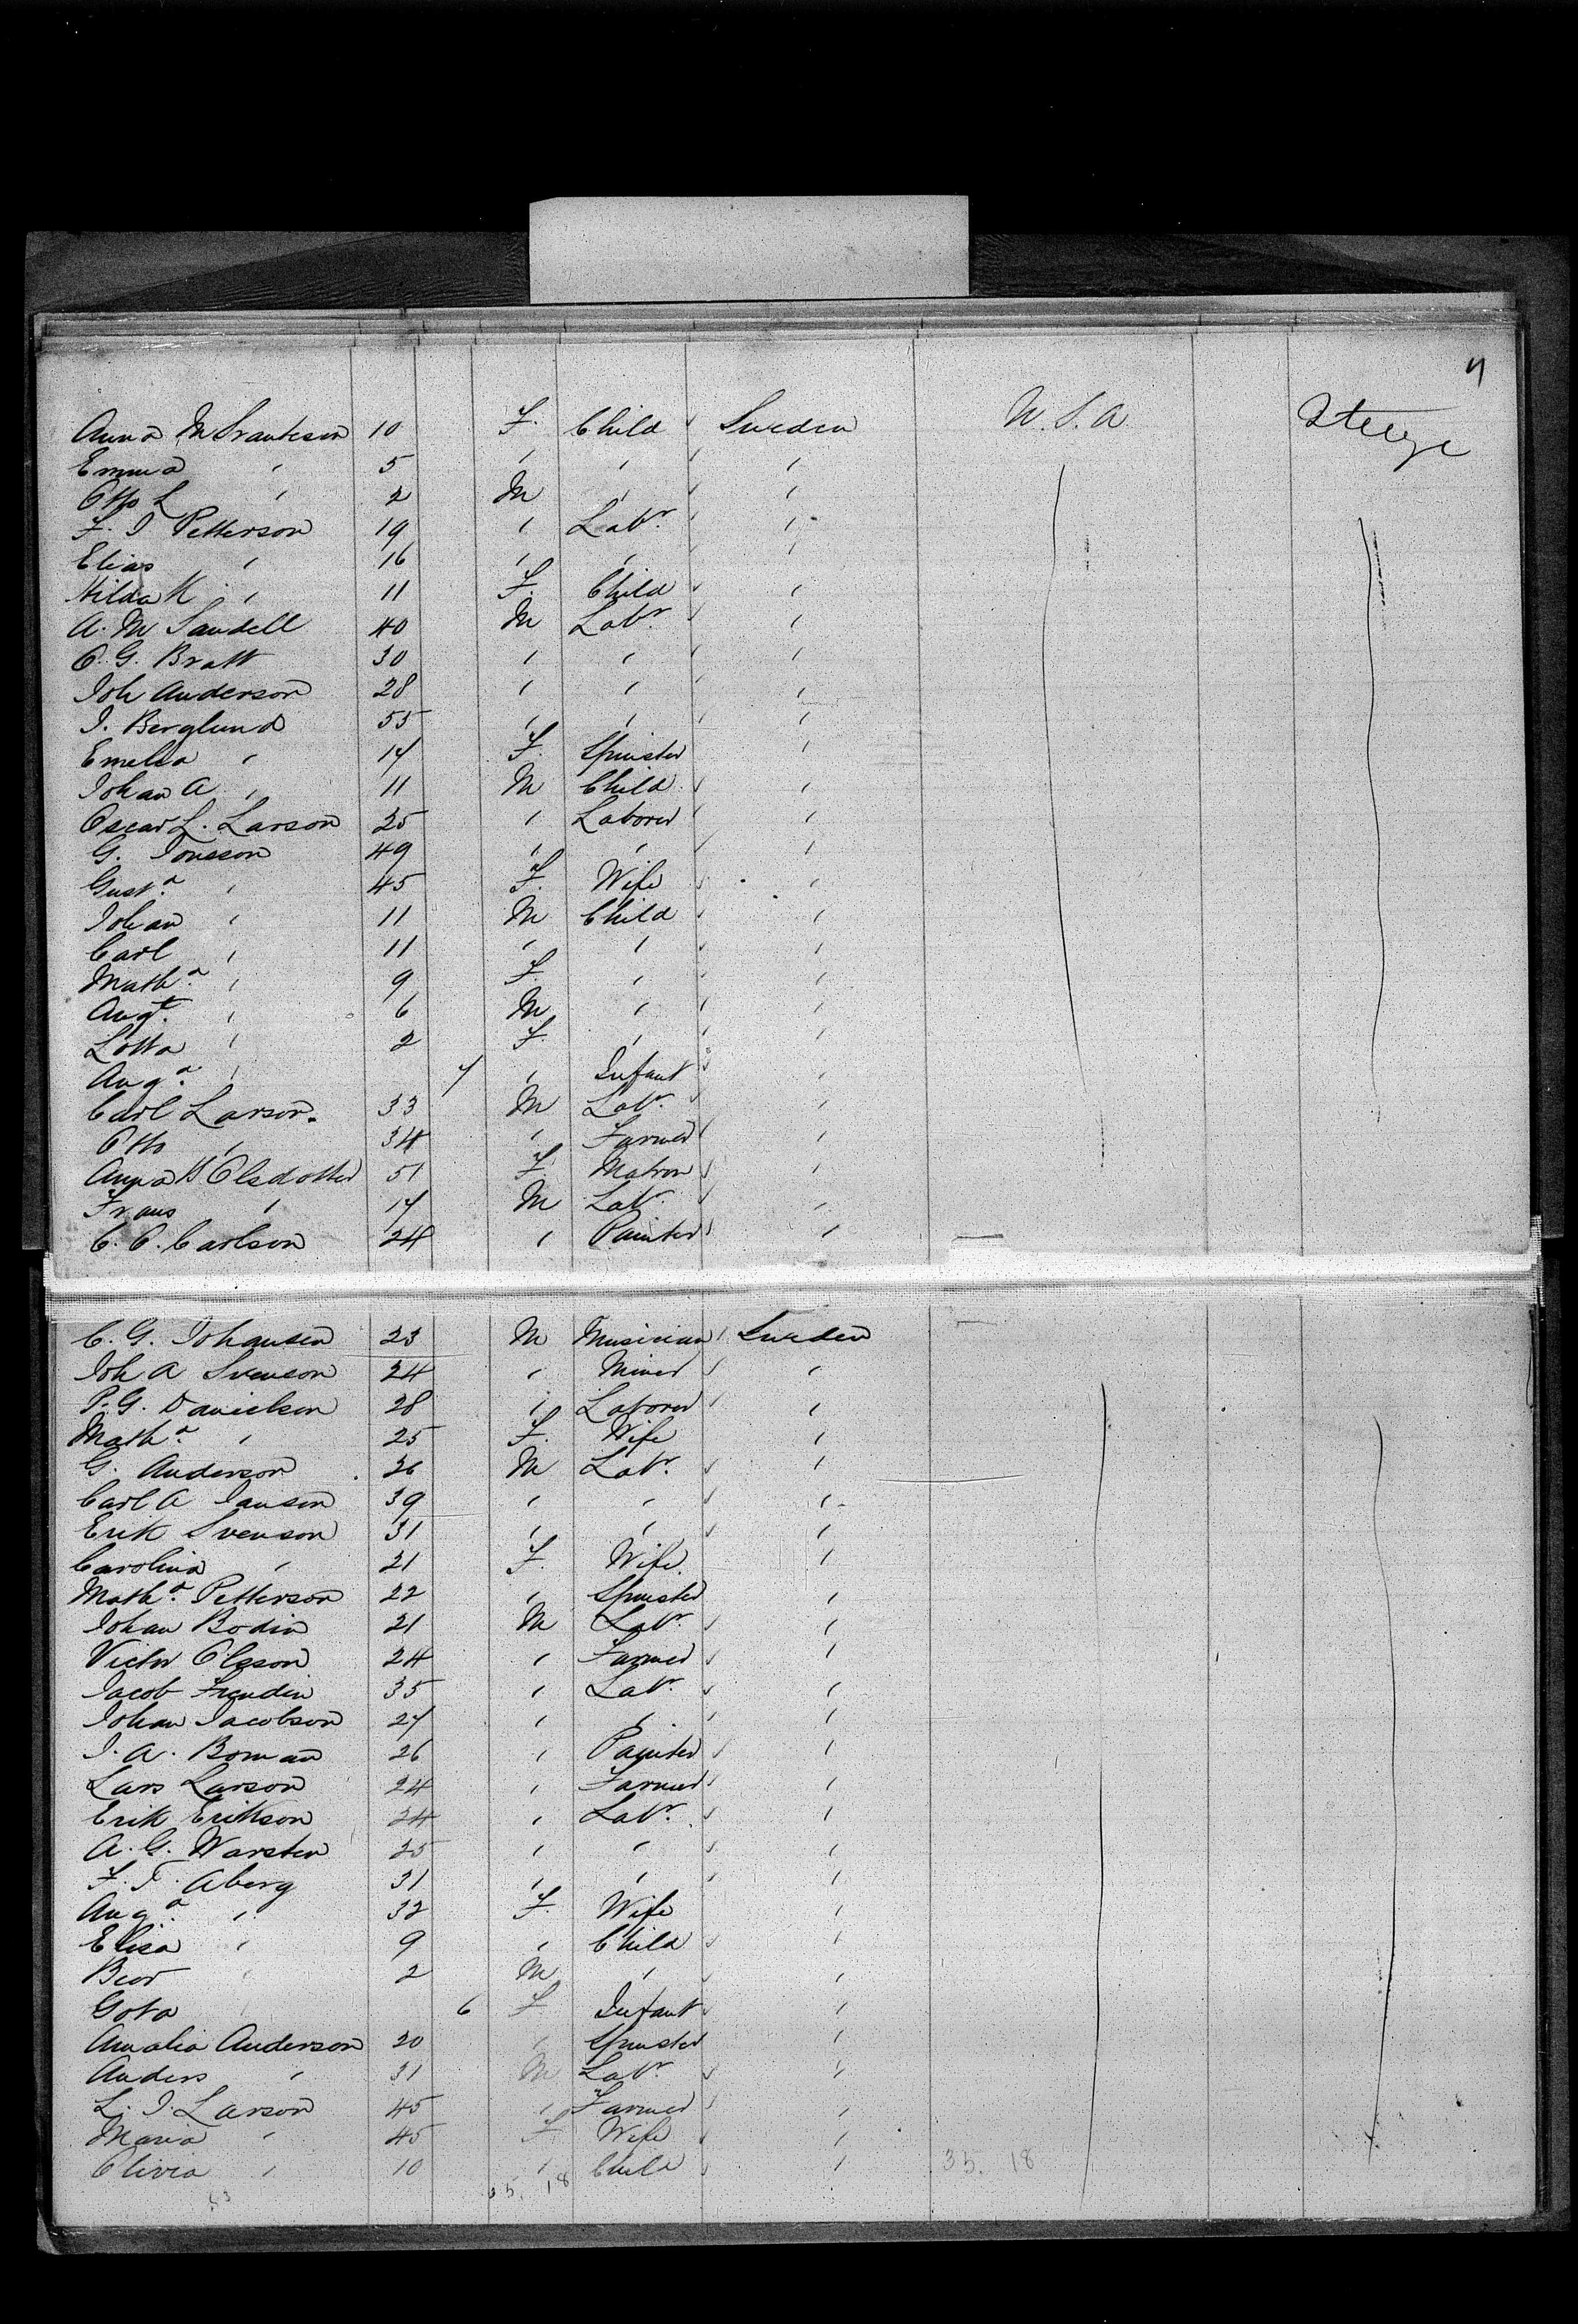 4
Anna M Svantesen 10 F. Child Sweden U.S.A. Steege
Emma " 5 " " "
Otto L " 2 M " "
F. I Petterson 19 " Labr. "
Elias " 16 " " "
Hilda M " 11 F. Child "
A. M Sandell 40 M Labr. "
C. G. Bratt 30 " " "
Joh Anderson 28 " " "
I. Berglund 55 " " "
Emelia " 17 F. Spinster "
Johan A " 11 M Child "
Oscar L. Larson 25 " Laborer "
G. Jonsson 49 " " "
Gusta. " 45 F. Wife "
Johan " 11 M Child "
Carl " 11 " " "
Matha. " 9 F. " "
Augt. " 6 M " "
Lotta " 2 F. " "
Auga. " 7 " Infant "
Carl Larson 33 M Labr. "
Otto " 34 " Farmer "
Anna Olsdotter 51 F. Matron "
Frans " 17 M Labr. "
C. O. Carlson 24 " Painter "
C. G. Johansen 23 M Musician Sweden
Joh A Svenson 24 " Miner "
P. G. Danielsen 28 " Laborer "
Matha. " 25 F. Wife "
G. Anderson 26 M Labr. "
Carl A Jansen 39 " " "
Erik Svenson 31 " " "
Carolina " 21 F. Wife "
Matha. Petterson 22 " Spinster "
Johan Bodin 21 M Labr. "
Victor Olsson 24 " Farmer "
Jacob Frendin 35 " Labr. "
Johan Jacobson 27 " " "
I. A. Boman 26 " Painter "
Lars Larson 24 " Farmer "
Erik Erikson 24 " Labr. "
A. G. Warsten 25 " " "
F. T. Aberg 31 " " "
Auga. " 32 F. Wife "
Elisa " 9 " Child "
" 2 M " "
Gota " 6 F Infant "
Amalia Anderson 20 " Spinster "
Anders " 31 M Labr. "
L. I. Larson 45 " Farmer "
Maria " 45 F Wife "
Olivia " 10 " Child " 35. 18
18